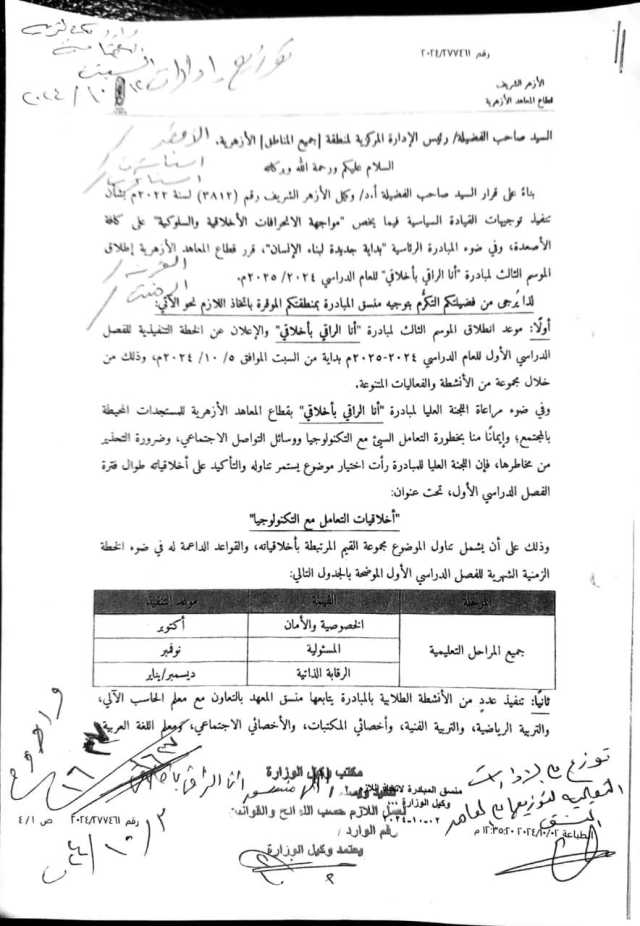 رقم ٢٠٢٤/٢٧٧٤٦١
الأزهر الشريف
قطاع المعاهد الأزهرية
توزيع إدارات
السيد صاحب الفضيلة/ رئيس الإدارة المركزية لمنطقة [جميع المناطق] الأزهرية.
السلام عليكم ورحمة الله وبركاته
بناءً على قرار السيد صاحب الفضيلة أ.د/ وكيل الأزهر الشريف رقم (٣٨١٢) لسنة ٢٠٢٢م بشأن
تنفيذ توجيهات القيادة السياسية فيما يخص "مواجهة الانحرافات الأخلاقية والسلوكية" على كافة
الأصعدة، وفي ضوء المبادرة الرئاسية "بداية جديدة لبناء الإنسان"، قرر قطاع المعاهد الأزهرية إطلاق
الموسم الثالث لمبادرة "أنا الراقي بأخلاقي" للعام الدراسي ٢٠٢٤/ ٢٠٢٥م.
لذا يُرجى من فضيلتكم التكرُّم بتوجيه منسق المبادرة بمنطقتكم الموقرة باتخاذ اللازم نحو الآتي:
أولًا: موعد انطلاق الموسم الثالث لمبادرة "أنا الراقي بأخلاقي" والإعلان عن الخطة التنفيذية للفصل
الدراسي الأول للعام الدراسي ٢٠٢٤-٢٠٢٥م بداية من السبت الموافق ٥/ ١٠/ ٢٠٢٤م، وذلك من
خلال مجموعة من الأنشطة والفعاليات المتنوعة.
وفي ضوء مراعاة اللجنة العليا لمبادرة "أنا الراقي بأخلاقي" بقطاع المعاهد الأزهرية للمستجدات المحيطة
بالمجتمع؛ وإيمانًا منا بخطورة التعامل السيئ مع التكنولوجيا ووسائل التواصل الاجتماعي، وضرورة التحذير
من مخاطرها، فإن اللجنة العليا للمبادرة رأت اختيار موضوع يستمر تناوله والتأكيد على أخلاقياته طوال فترة
الفصل الدراسي الأول، تحت عنوان:
"أخلاقيات التعامل مع التكنولوجيا"
وذلك على أن يشمل تناول الموضوع مجموعة القيم المرتبطة بأخلاقياته، والقواعد الداعمة له في ضوء الخطة
الزمنية الشهرية للفصل الدراسي الأول الموضحة بالجدول التالي:
المرحلة القيمة موعد التنفيذ
جميع المراحل التعليمية
الخصوصية والأمان أكتوبر
المسئولية نوفمبر
الرقابة الذاتية ديسمبر/يناير
ثانيًا: تنفيذ عدد من الأنشطة الطلابية بالمبادرة يتابعها منسق المعهد بالتعاون مع معلم الحاسب الآلي،
والتربية الرياضية، والتربية الفنية، وأخصائي المكتبات، والأخصائي الاجتماعي، ومعلم اللغة العربية
مكتب وكيل الوزارة
منسق المبادرة
وكيل الوزارة
٢٠٢٤-١٠-٠٢
لعمل اللازم حسب اللوائح
رقم الوارد
يعتمد وكيل الوزارة
الطباعة ٢٠٢٤/١٠/٠٢ ١٢:٣٥:٢٠ م
رقم ٢٠٢٤/٢٧٧٤٦١ ص ٤/١